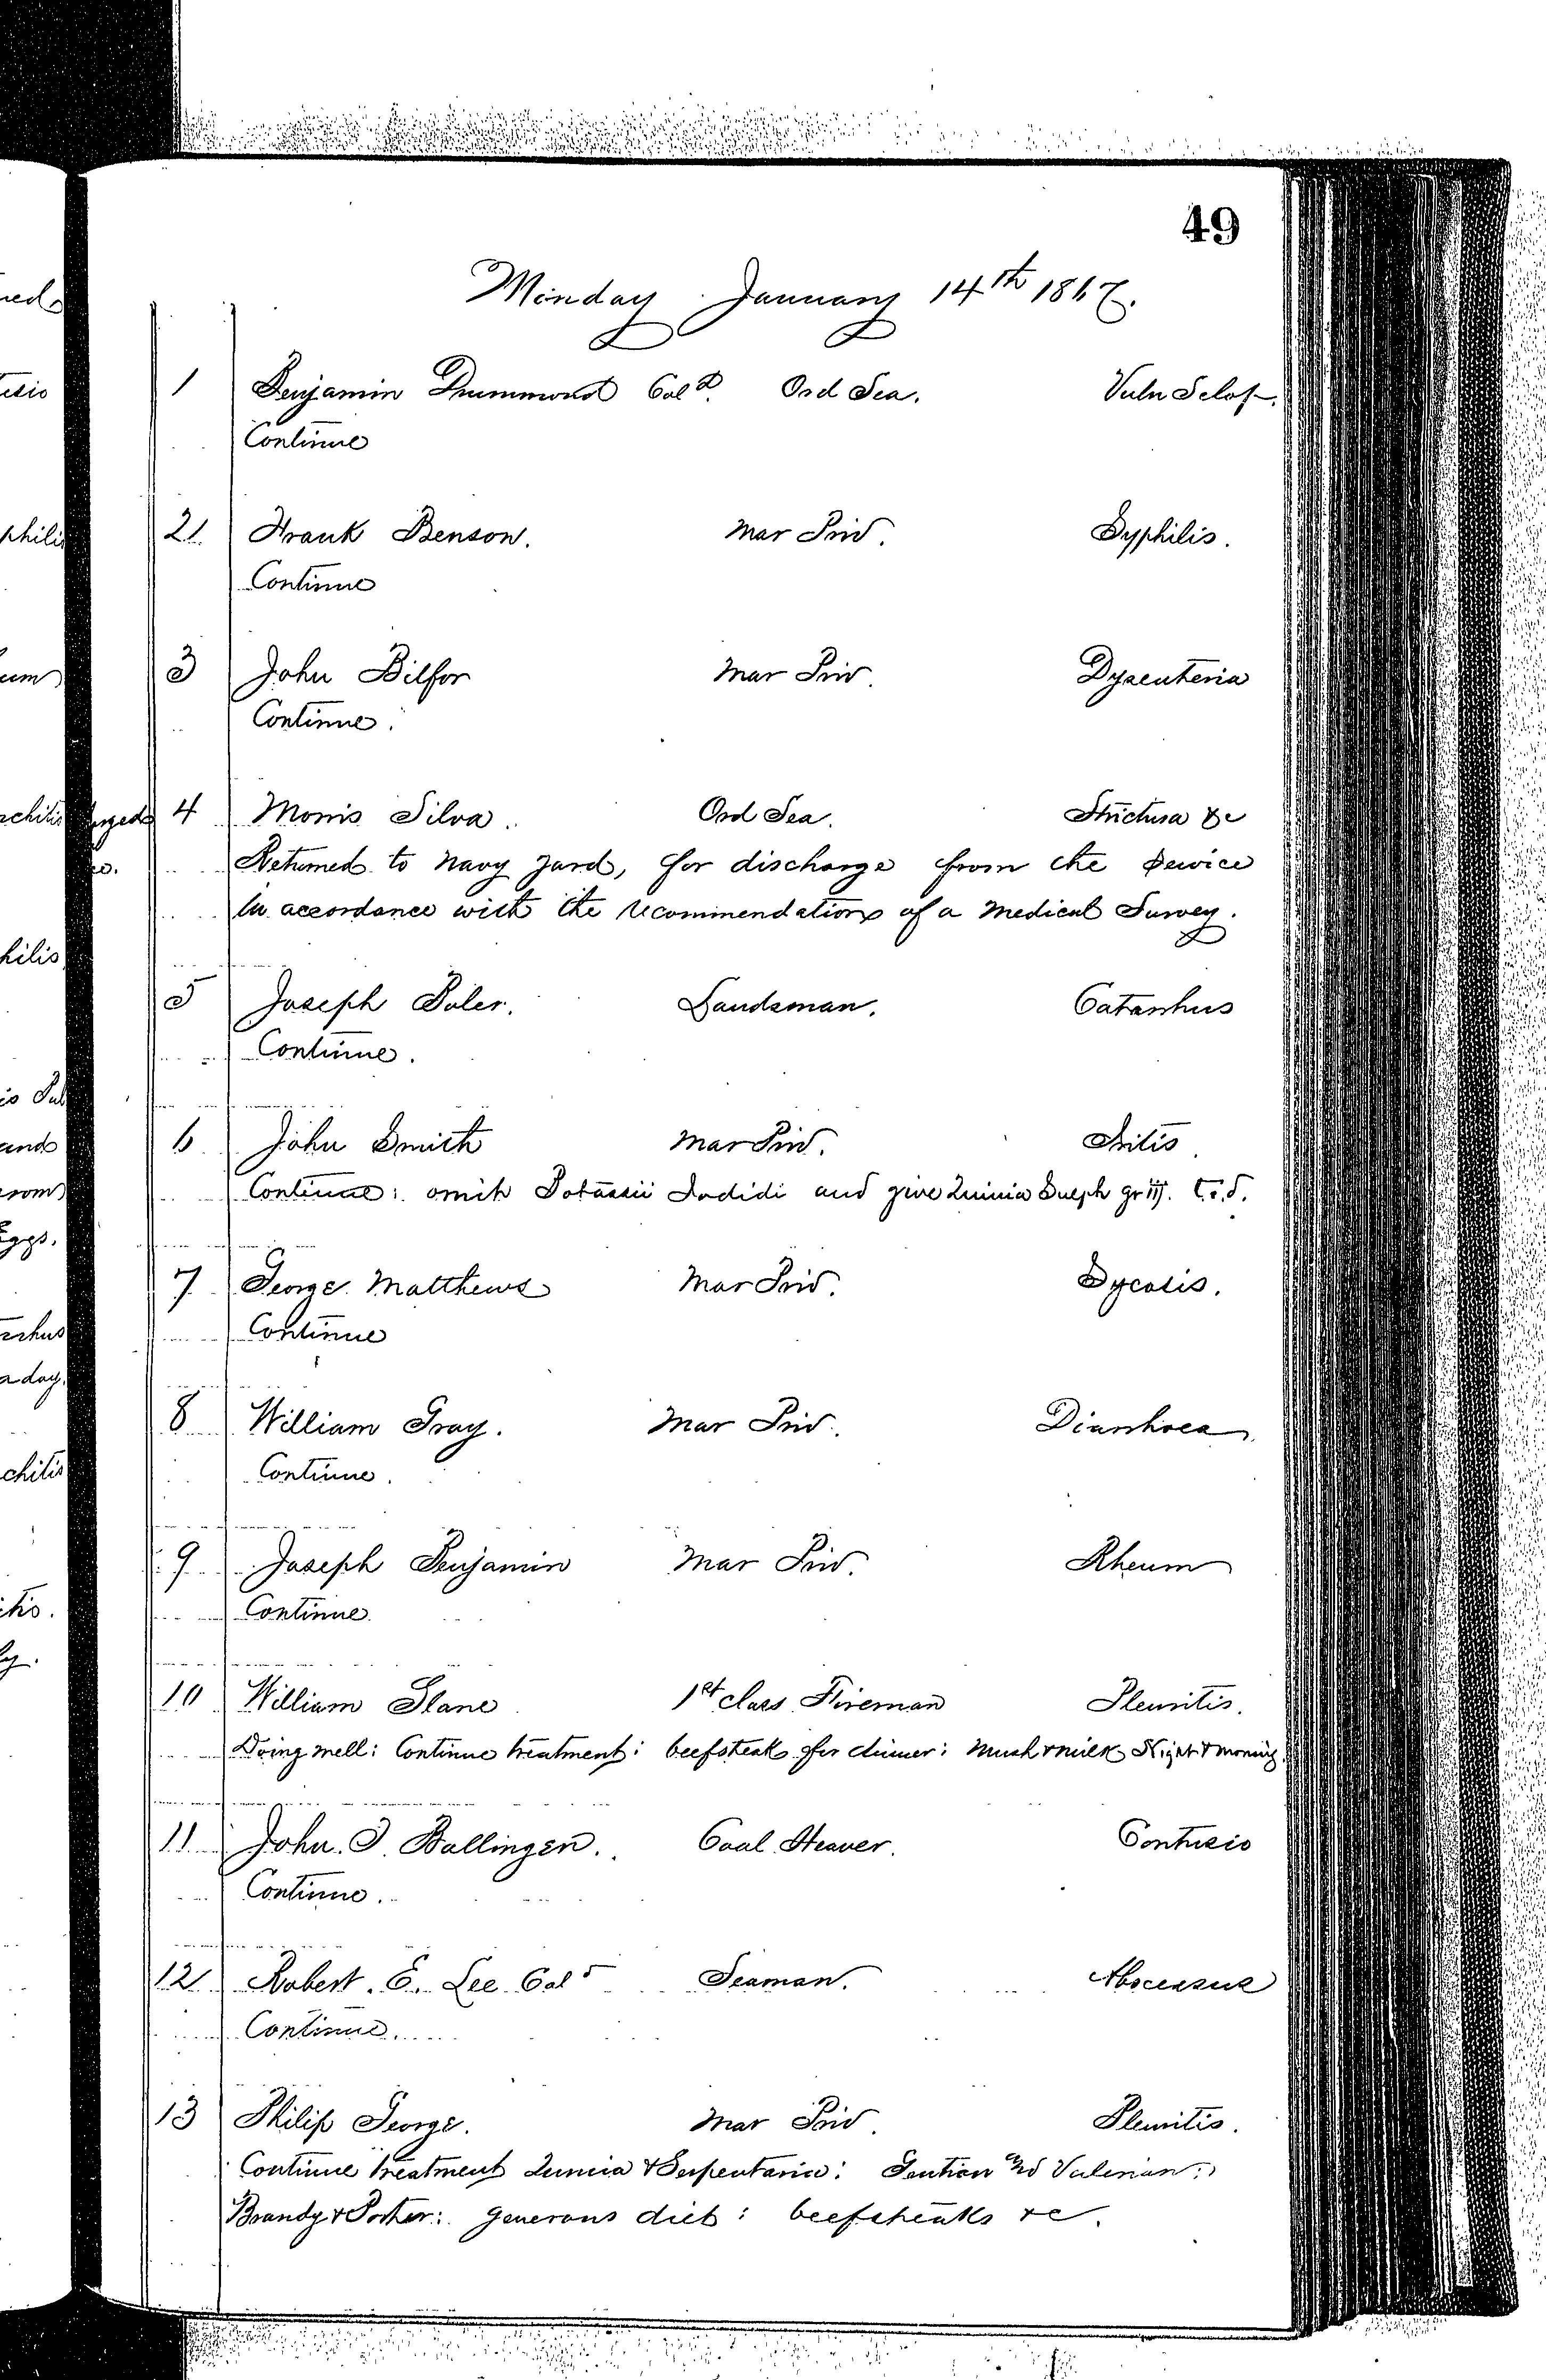 49
Monday January 14th 1867.
1 Benjamin Drummond Cold. Ord Sea. Vuln Sclop.
Continue
2 Frank Benson. Mar Priv. Syphilis.
Continue
3 John Bilfor Mar Priv. Dysenteria
Continue.
4 Morris Silva. Ord Sea. Strictura &c
Returned to Navy Yard, for discharge from the Service
in accordance with the recommendation of a Medical Survey.
5 Joseph Soler. Landsman. Catarrhus
Continue.
6 John Smith Mar Priv. Iritis
Continue: omit Potassii Iodidi and give Quinia Sulph gr iij. t.i.d.
7 George Matthews Mar Priv. Sycosis.
Continue
8 William Gray. Mar Priv. Diarrhoea
Continue.
9 Joseph Benjamin Mar Priv. Rheum
Continue.
10 William Slane 1st class Fireman Pleuritis.
Doing well: Continue treatment: beefsteak for dinner: Mush & milk Night & morning
11 John. I. Ballingen. Coal Heaver. Contusio
Continue.
12 Robert. E. Lee Cold Seaman. Abscessus
Continue.
13 Philip George. Mar Priv. Pleuritis.
Continue treatment Quinia & Serpentaria: Gentian and Valerian:
Brandy & Porter: generous diet: beefsteaks &c.